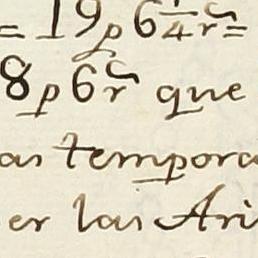 = 19 p 6 1/4 r =
8 p 6 r que
as tempora
er las Ari